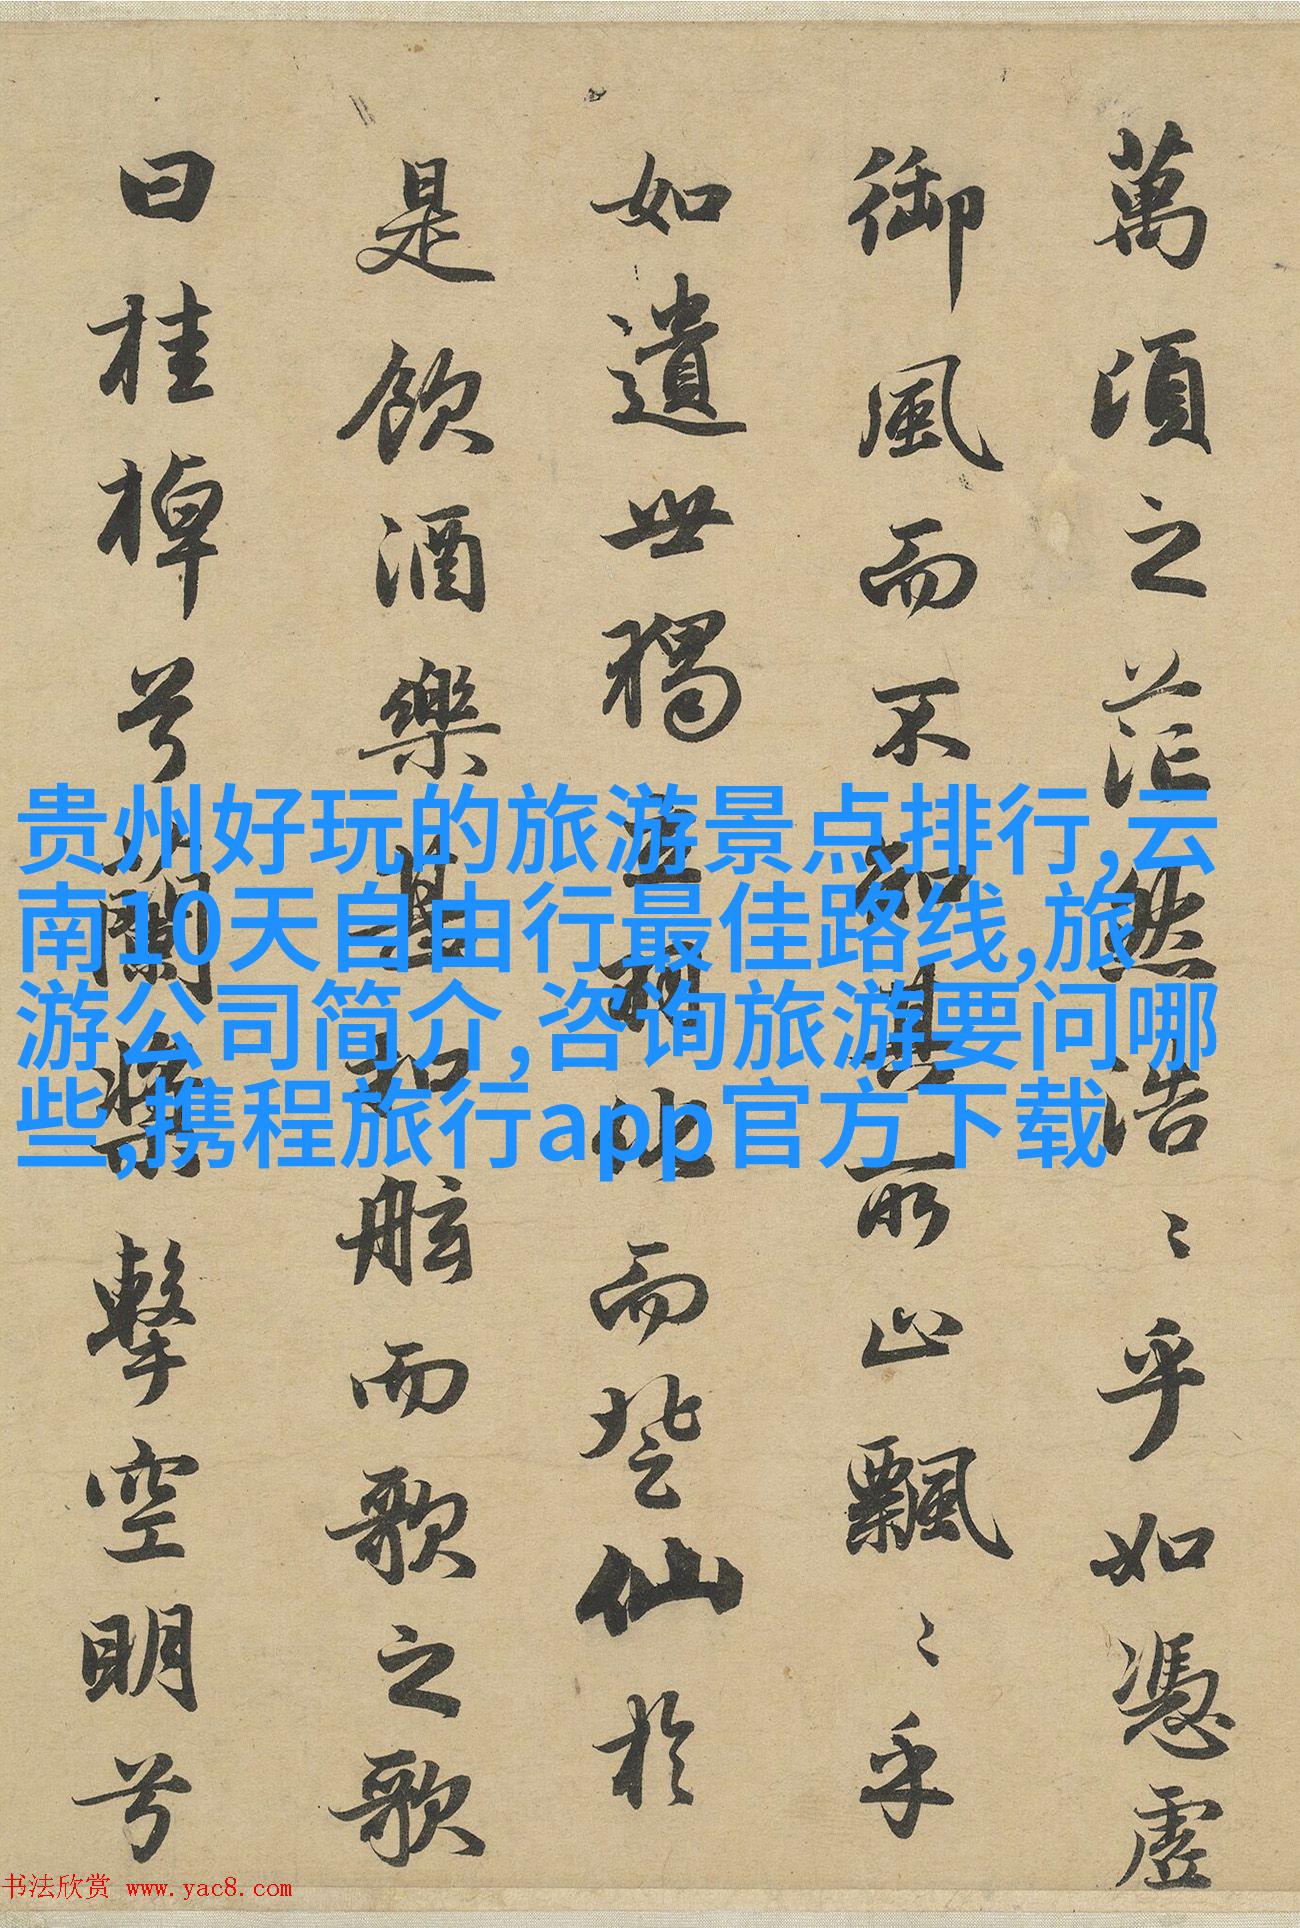 萬頃之茫然浩〻乎如憑虛
御風而不知其所止飄〻乎
如遺世獨立羽化而登仙於
是飲酒樂甚扣舷而歌之歌
曰桂棹兮蘭槳擊空明兮
贵州好玩的旅游景点排行,云
南10天自由行最佳路线,旅
游公司简介,咨询旅游要问哪
些,携程旅行app官方下载
书法欣赏 www.yac8.com